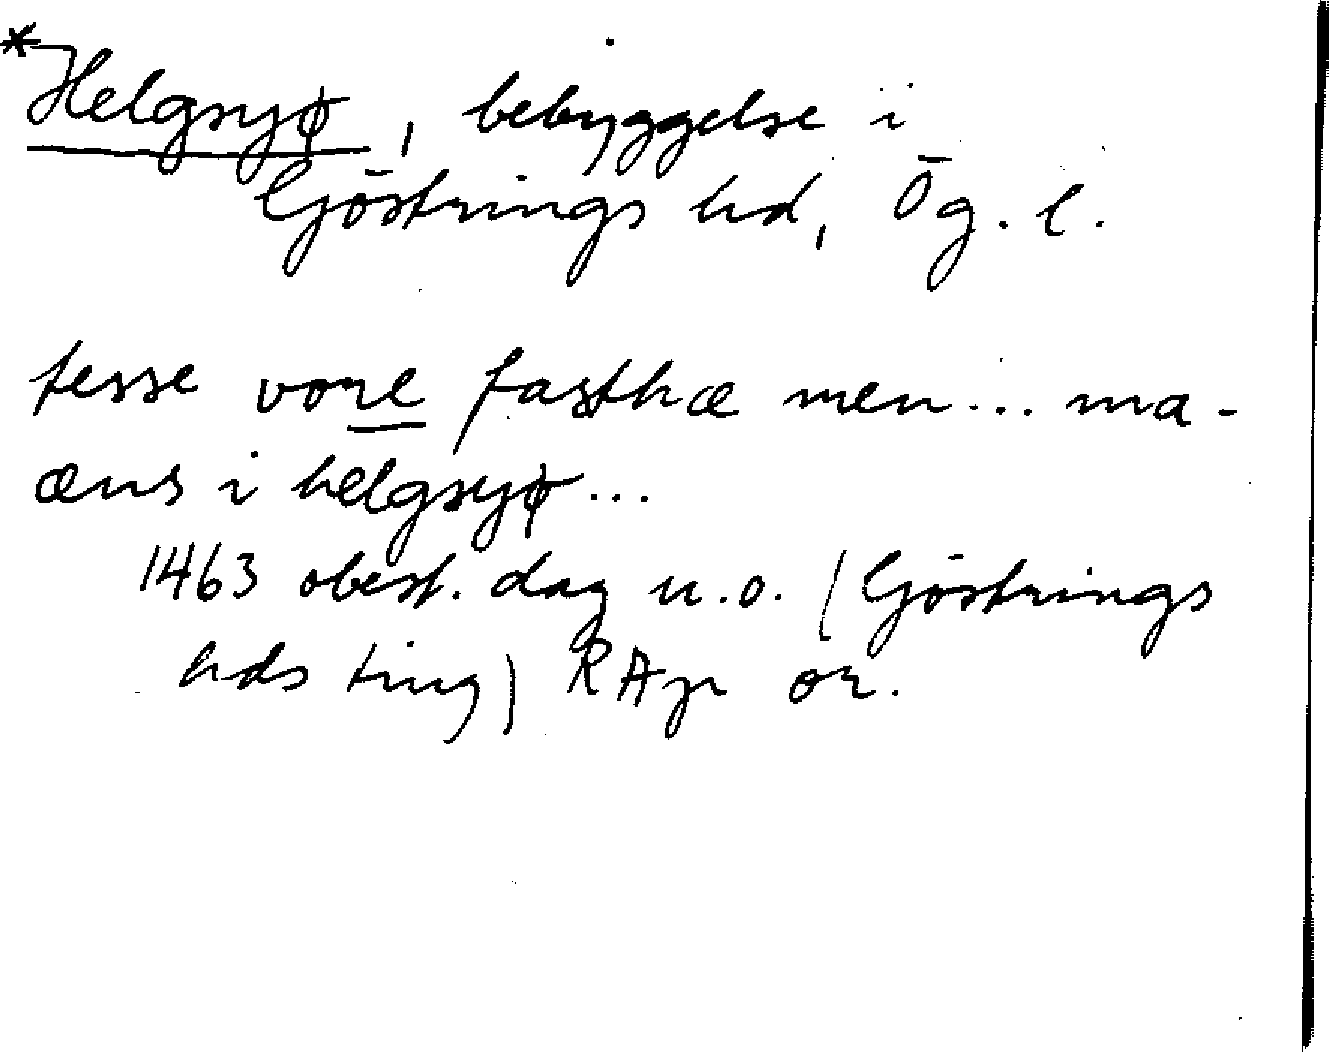 *Helgsyø, bebyggelse i
Göstrings hd, Ög. l.
tesse vore fasthæ men... ma-
æns i helgsyø...
1463 obest. dag u.o. (Göstrings
hds ting) RAp or.